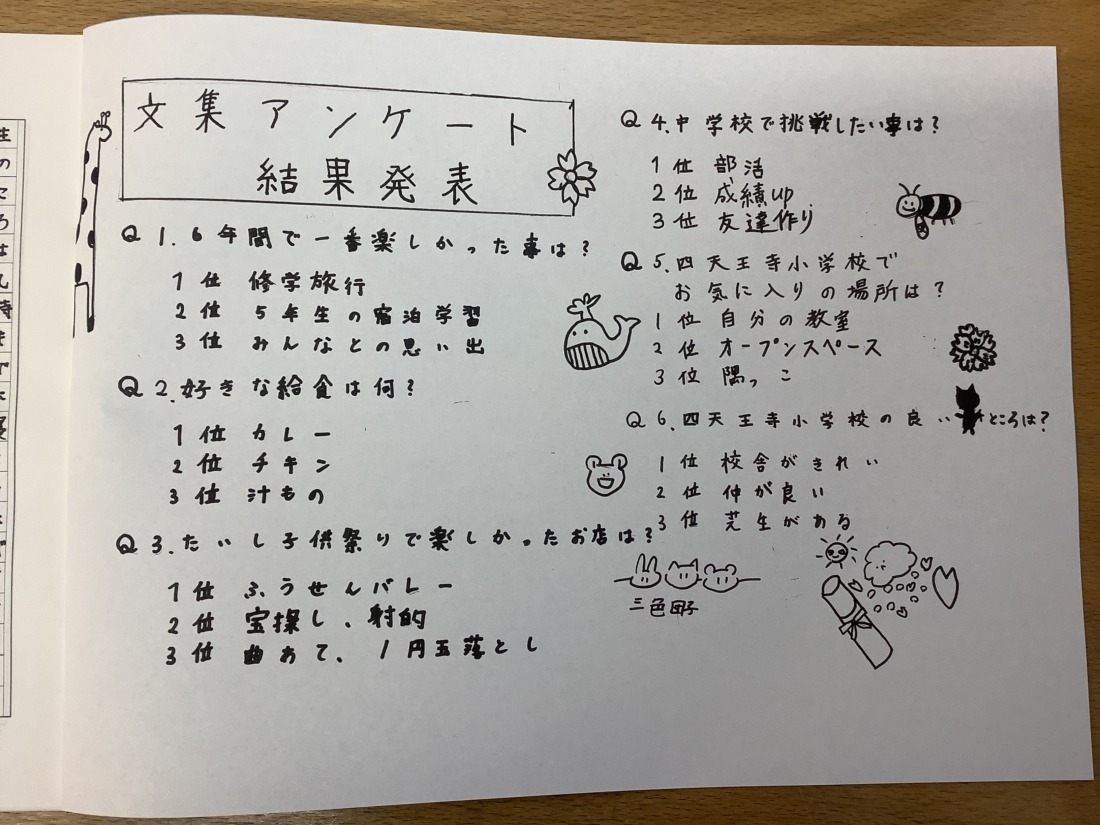 文集アンケート
結果発表
Q1.6年間で一番楽しかった事は？
1位 修学旅行
2位 5年生の宿泊学習
3位 みんなとの思い出
Q2.好きな給食は何？
1位 カレー
2位 チキン
3位 汁もの
Q3.たいし子供祭りで楽しかったお店は？
1位 ふうせんバレー
2位 宝探し、射的
3位 曲あて、1円玉落とし
Q4.中学校で挑戦したい事は？
1位 部活
2位 成績up
3位 友達作り
Q5.四天王寺小学校で
お気に入りの場所は？
1位 自分の教室
2位 オープンスペース
3位 隅っこ
Q6.四天王寺小学校の良いところは？
1位 校舎がきれい
2位 仲が良い
3位 芝生がある
三色団子